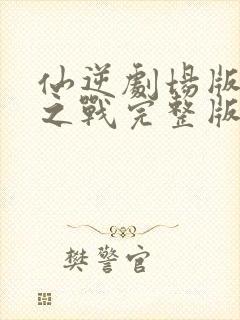 仙逆劇場版
之戰完整版
樊警官